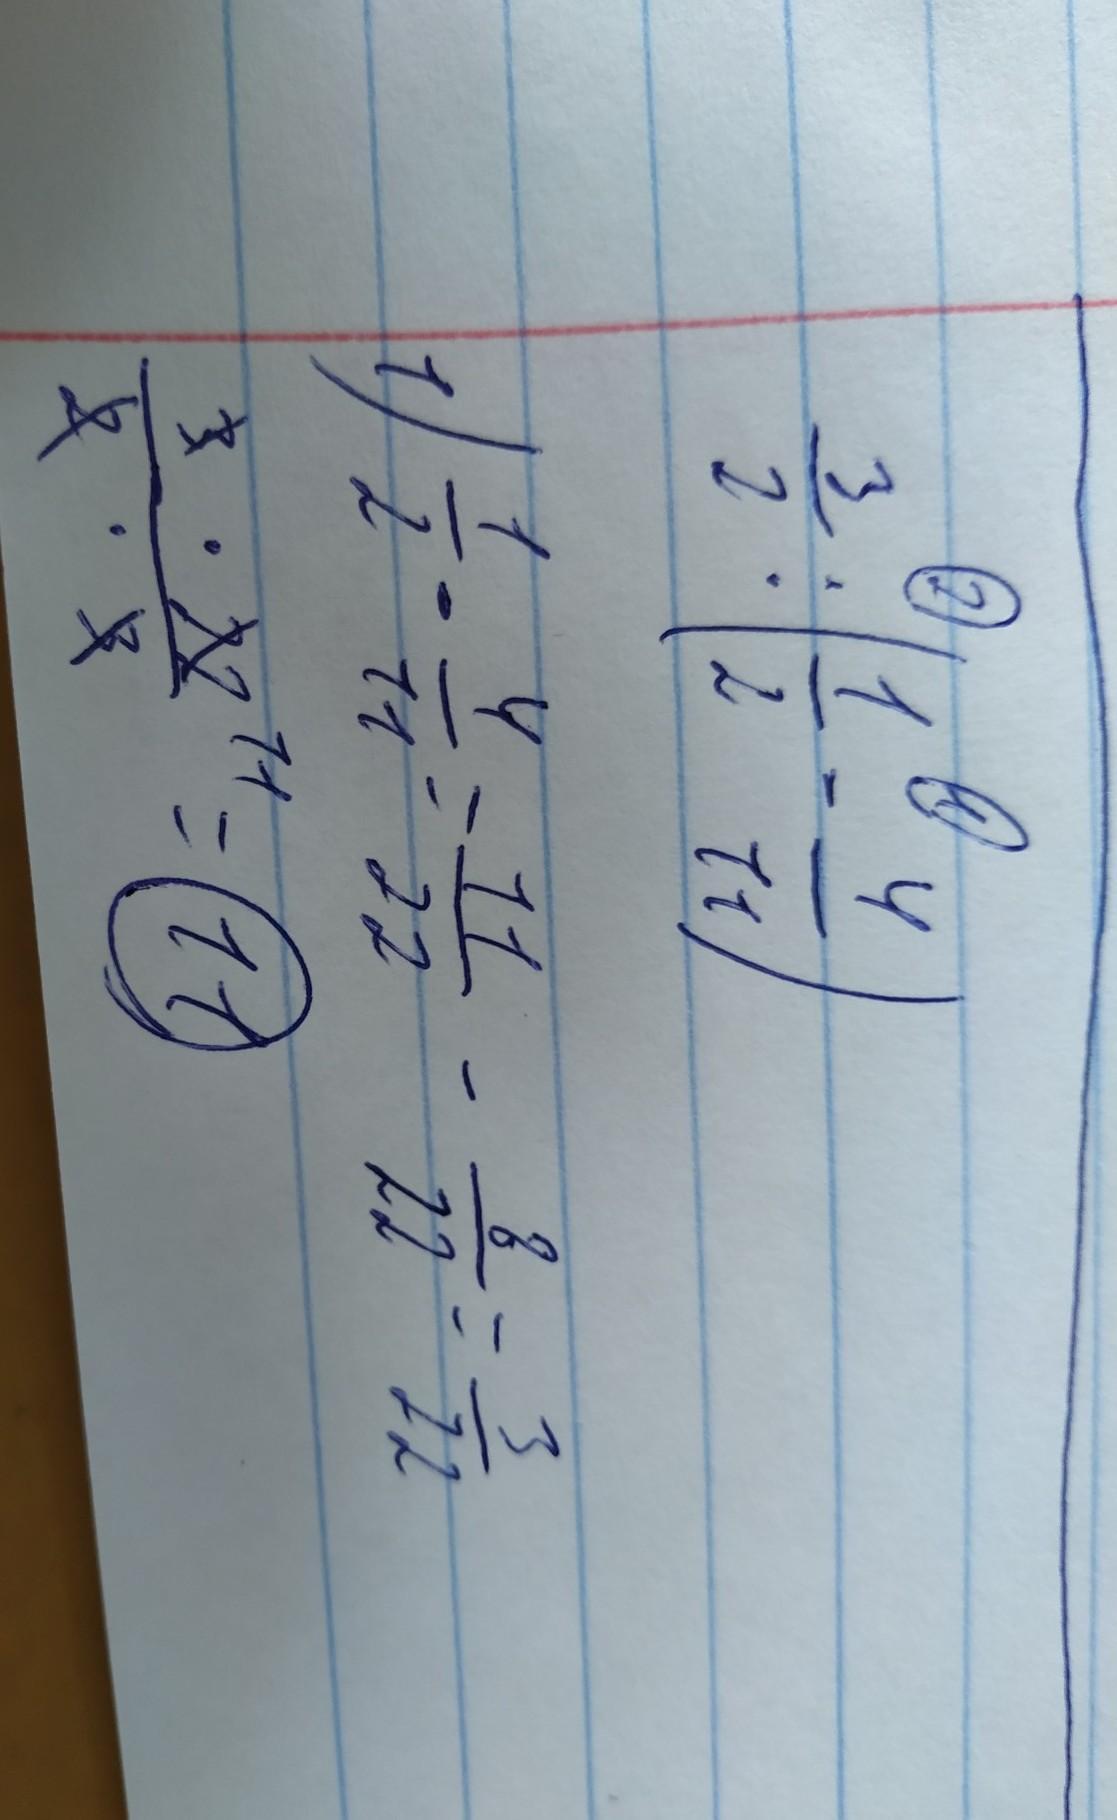 ② ①
3/2 : (1/2 - 4/11)
1) 1/2 - 4/11 = 11/22 - 8/22 = 3/22
3 · 22 11 / 2 · 3 = 11